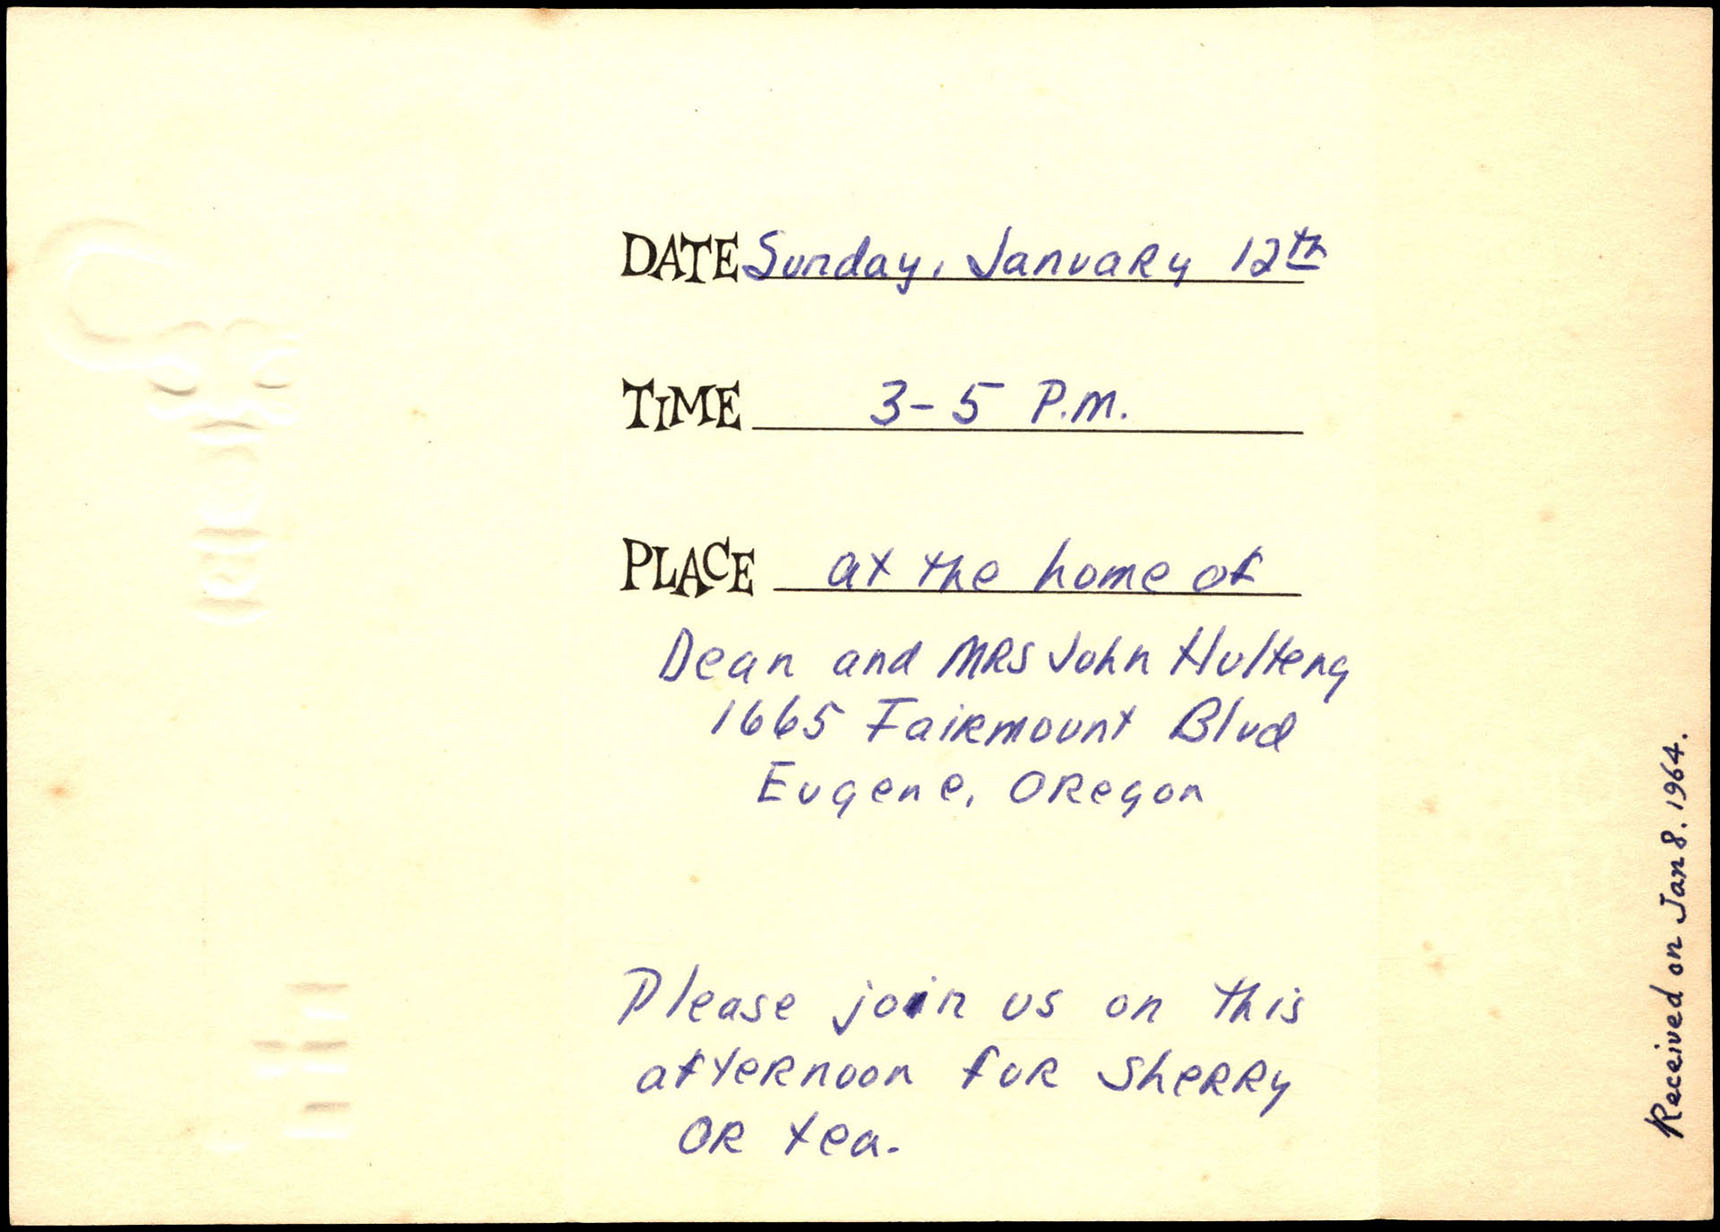 DATE Sunday, January 12th
TIME 3-5 P.M.
PLACE at the home of
Dean and MRS John Hulteng
1665 Fairmount Blvd
Eugene, Oregon
Please join us on this
afternoon for sherry
or tea.
Received on Jan 8. 1964.